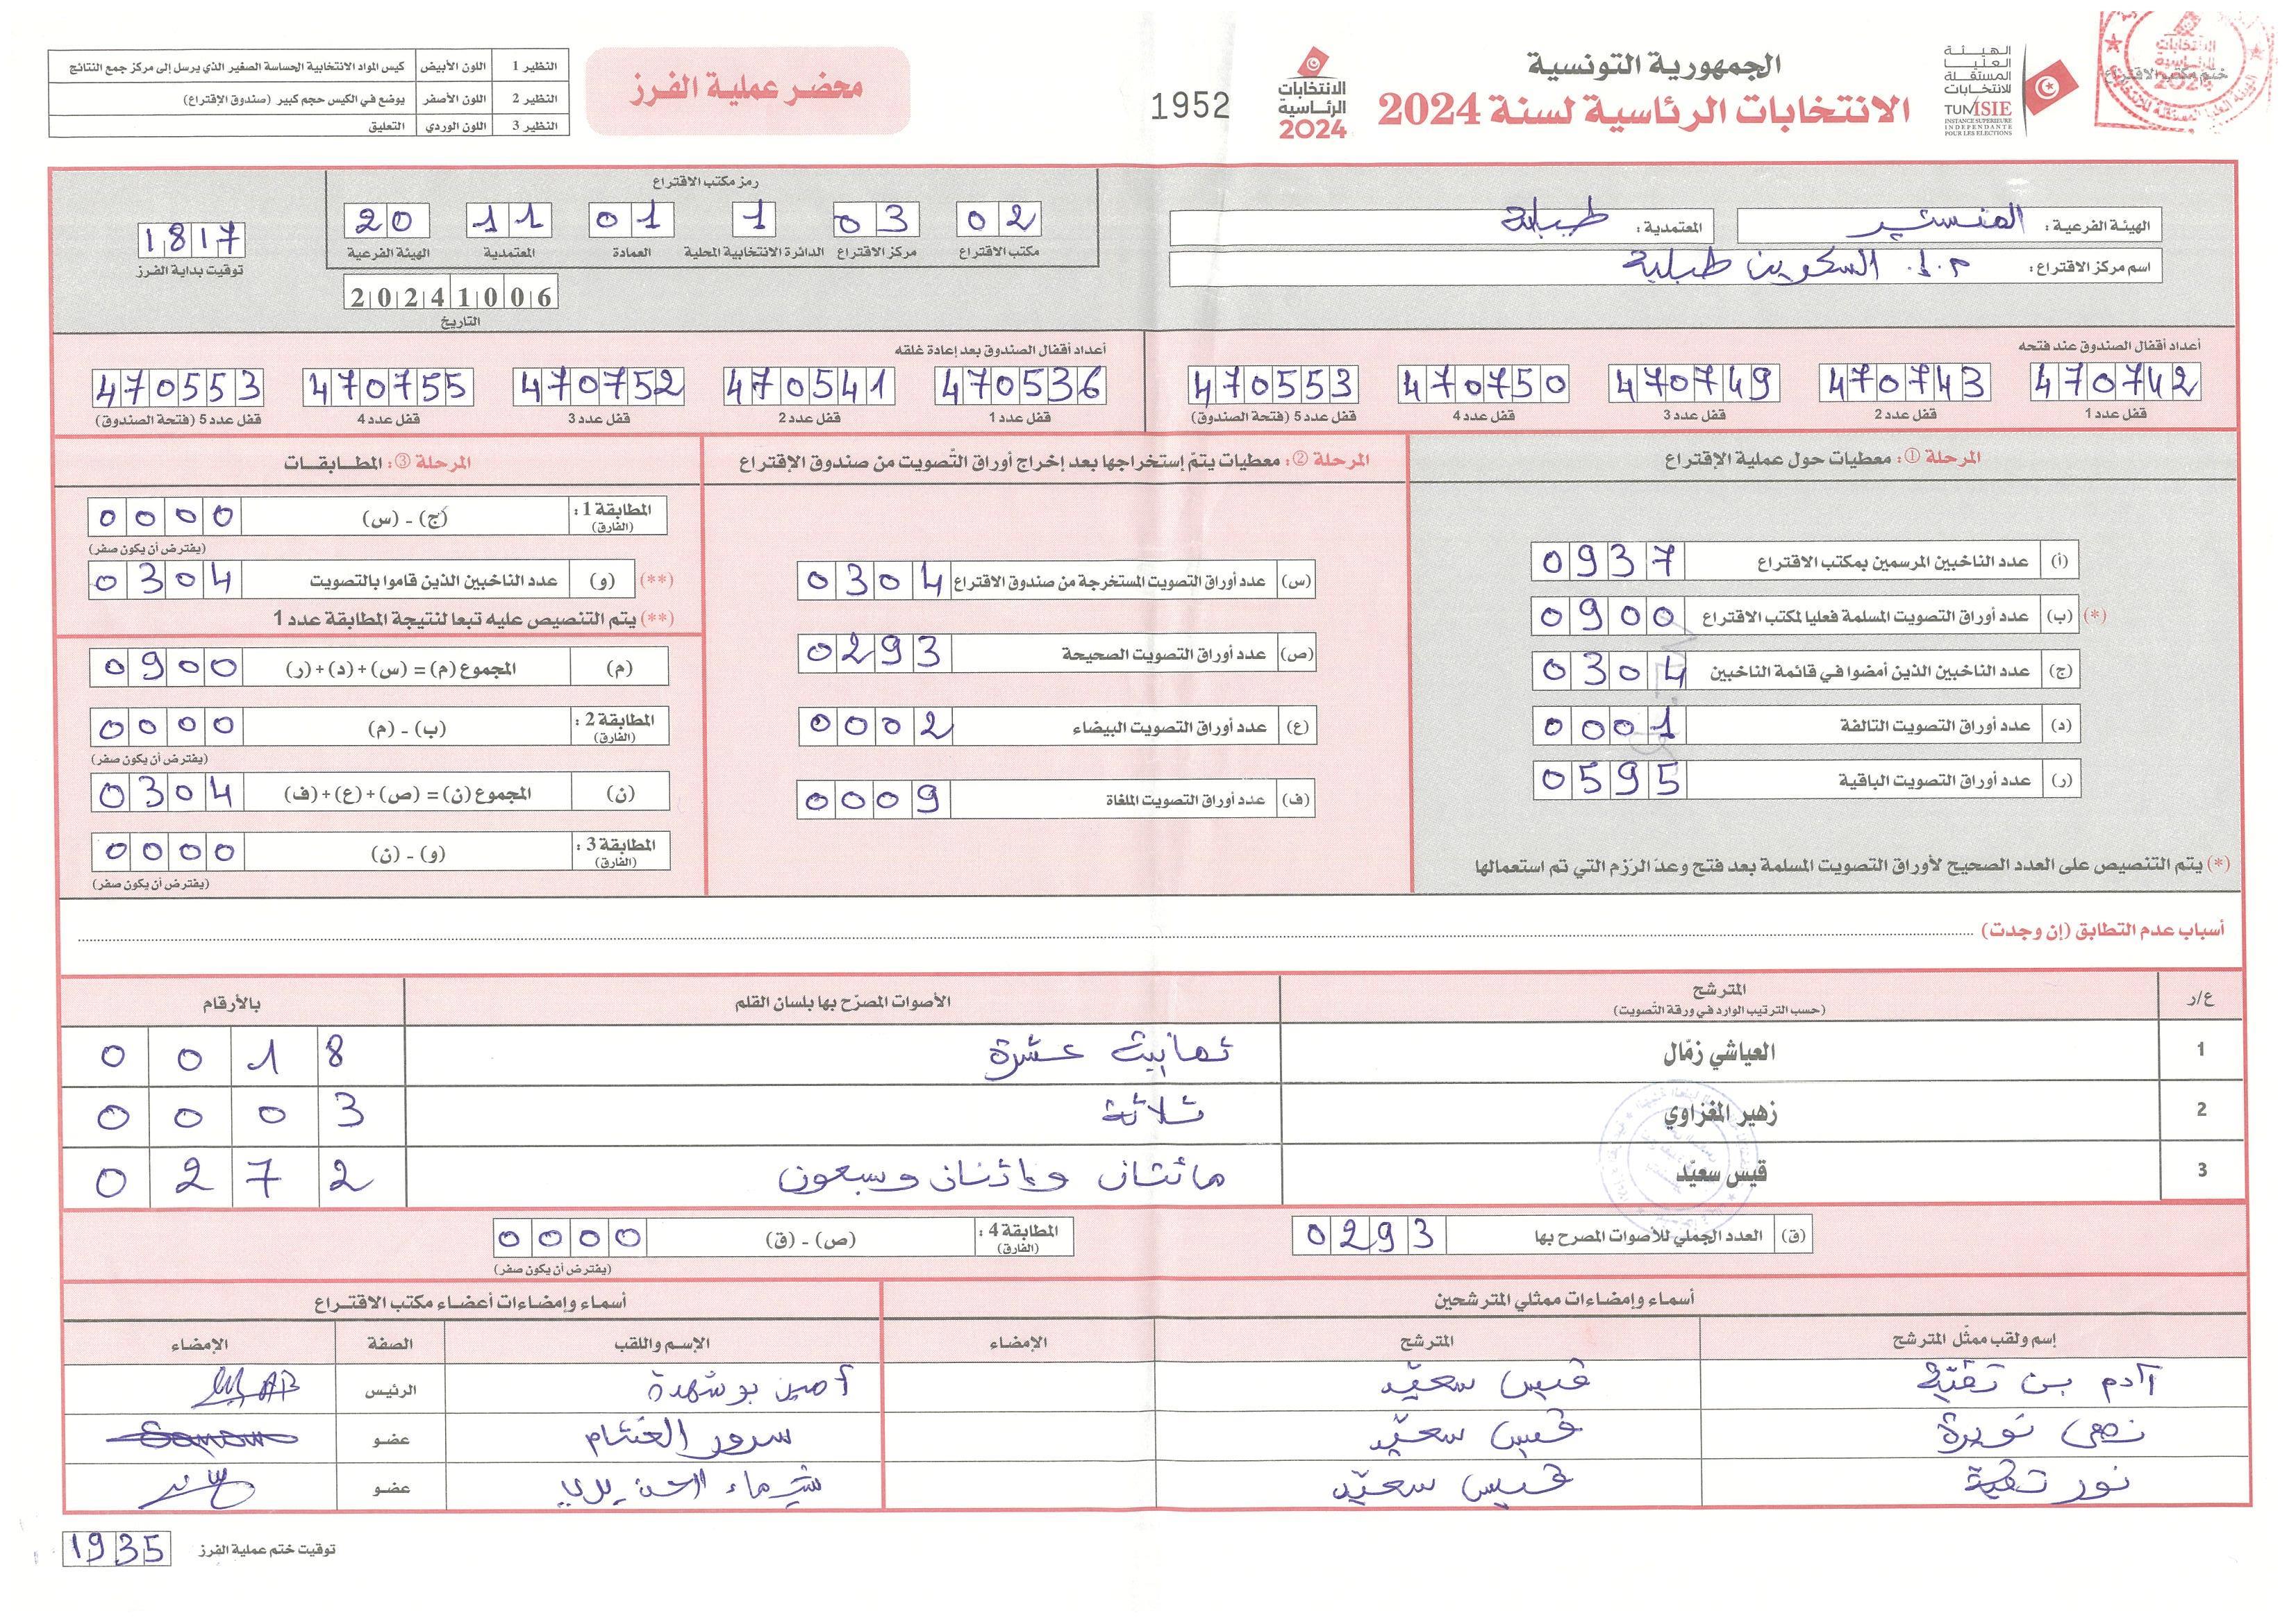 الهيئة
العليا
المستقلة
للانتخابات
TUNISIE
INSTANCE SUPERIEURE
INDEPENDANTE
POUR LES ELECTIONS
ختم مكتب الاقتراع
الجمهورية التونسية
الانتخابات الرئاسية لسنة 2024
الانتخابات
الرئاسية
2024
1952
محضر عملية الفرز
النظير 1 اللون الأبيض كيس المواد الانتخابية الحساسة الصغير الذي يرسل إلى مركز جمع النتائج
النظير 2 اللون الأصفر يوضع في الكيس حجم كبير (صندوق الإقتراع)
النظير 3 اللون الوردي التعليق
الهيئة الفرعية : المنستير المعتمدية : طبلبة
اسم مركز الاقتراع : م.إ. السكرين طبلبة
رمز مكتب الاقتراع
02 03 1 01 11 20
مكتب الاقتراع مركز الاقتراع الدائرة الانتخابية المحلية العمادة المعتمدية الهيئة الفرعية
20241006
التاريخ
1817
توقيت بداية الفرز
أعداد أقفال الصندوق عند فتحه
470742 470743 470749 470750 470553
قفل عدد 1 قفل عدد 2 قفل عدد 3 قفل عدد 4 قفل عدد 5 (فتحة الصندوق)
أعداد أقفال الصندوق بعد إعادة غلقه
470536 470541 470752 470755 470553
قفل عدد 1 قفل عدد 2 قفل عدد 3 قفل عدد 4 قفل عدد 5 (فتحة الصندوق)
المرحلة ① : معطيات حول عملية الإقتراع
(أ) عدد الناخبين المرسمين بمكتب الاقتراع 0937
(*) (ب) عدد أوراق التصويت المسلمة فعليا لمكتب الاقتراع 0900
(ج) عدد الناخبين الذين أمضوا في قائمة الناخبين 0304
(د) عدد أوراق التصويت التالفة 0001
(ر) عدد أوراق التصويت الباقية 0595
(*) يتم التنصيص على العدد الصحيح لأوراق التصويت المسلمة بعد فتح وعدّ الرّزم التي تم استعمالها
المرحلة ② : معطيات يتمّ إستخراجها بعد إخراج أوراق التّصويت من صندوق الإقتراع
(س) عدد أوراق التصويت المستخرجة من صندوق الاقتراع 0304
(ص) عدد أوراق التصويت الصحيحة 0293
(ع) عدد أوراق التصويت البيضاء 0002
(ف) عدد أوراق التصويت الملغاة 0009
المرحلة ③ : المطابقات
المطابقة 1 : (الفارق) (ج) - (س) 0000
(يفترض أن يكون صفر)
(**) (و) عدد الناخبين الذين قاموا بالتصويت 0304
(**) يتم التنصيص عليه تبعا لنتيجة المطابقة عدد 1
(م) المجموع (م) = (س) + (د) + (ر) 0900
المطابقة 2 : (الفارق) (ب) - (م) 0000
(يفترض أن يكون صفر)
(ن) المجموع (ن) = (ص) + (ع) + (ف) 0304
المطابقة 3 : (الفارق) (و) - (ن) 0000
(يفترض أن يكون صفر)
أسباب عدم التطابق (إن وجدت)
ع/ر المترشح الأصوات المصرّح بها بلسان القلم بالأرقام
(حسب الترتيب الوارد في ورقة التّصويت)
1 العياشي زمّال ثمانية عشرة 0018
2 زهير المغزاوي ثلاثة 0003
3 قيس سعيّد مائتان وإثنان وسبعون 0272
(ق) العدد الجملي للأصوات المصرح بها 0293
المطابقة 4 : (الفارق) (ص) - (ق) 0000
(يفترض أن يكون صفر)
أسماء وإمضاءات ممثلي المترشحين
إسم ولقب ممثّل المترشح المترشح الإمضاء
آدم بن تقيّة قيس سعيّد
نهى نويرة قيس سعيّد
نور تقية قيس سعيّد
أسماء وإمضاءات أعضاء مكتب الاقتراع
الإسم واللقب الصفة الإمضاء
أمين بوشهدة الرئيس
سرور الغشام عضو
شيماء عضو
توقيت ختم عملية الفرز 1935